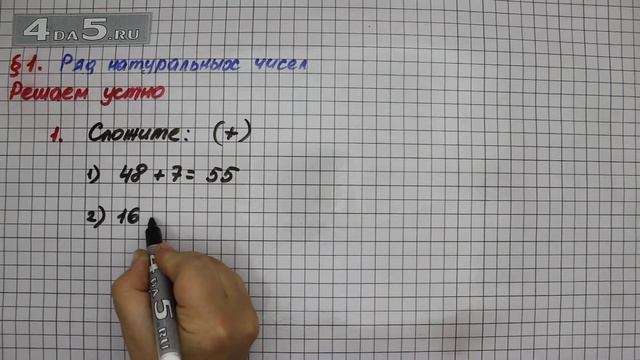 4ДА5.RU
§1. Ряд натуральных чисел
Решаем устно
1. Сложите: (+)
1) 48 + 7 = 55
2) 16
4ДА5.RU